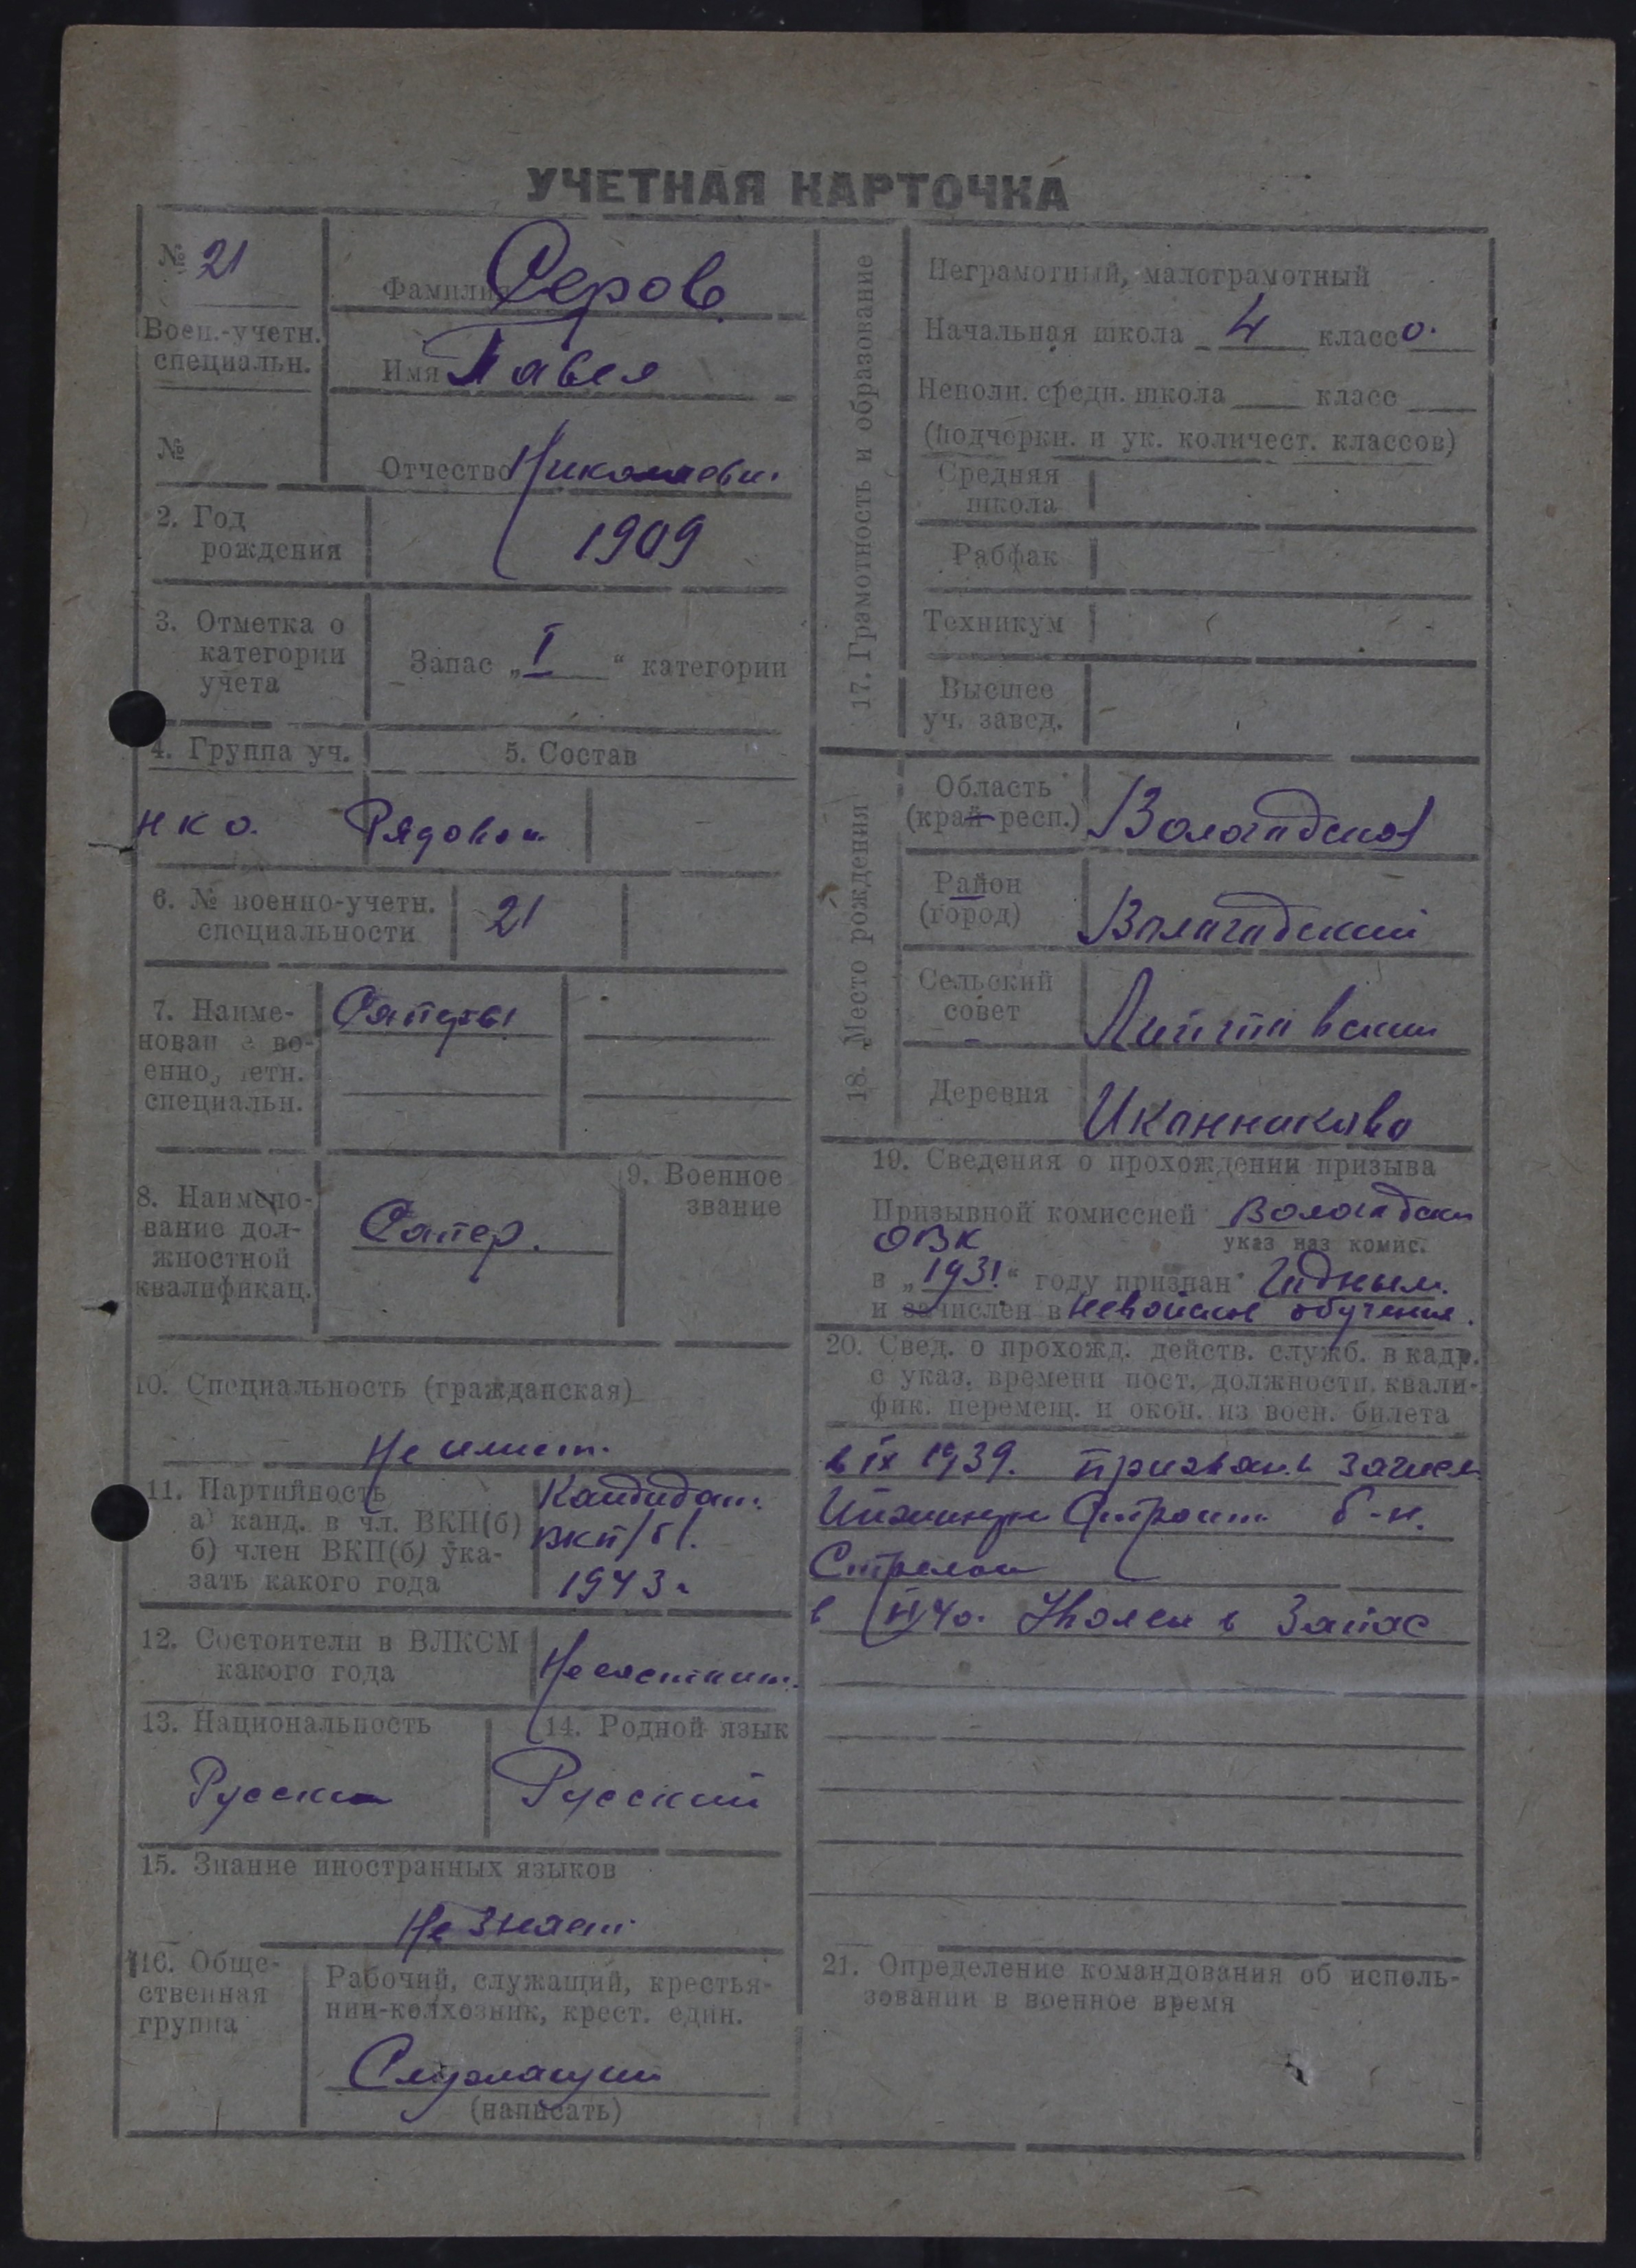 УЧЕТНАЯ КАРТОЧКА
№ 21
Воен.-учетн.
специальн.
№
Фамилия Серов
Имя Павел
Отчество Николаевич
2. Год
рождения
1909
3. Отметка о
категории
учета
Запас „ I “ категории
4. Группа уч.
5. Состав
НКО.
Рядовой
6. № военно-учетн.
специальности
21
7. Наиме-
нован е во-
енно, етн.
специальн.
Саперы
8. Наимено-
вание дол-
жностной
квалификац.
Сапер.
9. Военное
звание
10. Специальность (гражданская)
Не имеет.
11. Партийность
а) канд. в чл. ВКП(б)
б) член ВКП(б) ука-
зать какого года
Кандидат.
ВКП/б/.
1943 г
12. Состоители в ВЛКСМ
какого года
Не состоит.
13. Национальность
Русский
14. Родной язык
Русский
15. Знание иностранных языков
Не знает
16. Обще-
ственная
группа
Рабочий, служащий, крестья-
нин-колхозник, крест. един.
Служащий
(написать)
17. Грамотность и образование
Неграмотный, малограмотный
Начальная школа 4 класс о.
Неполн. средн. школа класс
(подчеркн. и ук. количест. классов)
Средняя
школа
Рабфак
Техникум
Высшее
уч. завед.
18. Место рождения
Область
(край респ.)
Вологодская
Район
(город)
Вологодский
Сельский
совет
Деревня
Иконниково
19. Сведения о прохождении призыва
Призывной комиссией Вологодский
ОВК
указ наз комис.
в „1931“ году признан Годным.
и зачислен в невойсков обучения.
20. Свед. о прохожд. действ. служб. в кадр.
с указ. времени пост. должности, квали-
фик. перемещ. и окон. из воен. билета
в IX 1939. призван. и зачисл
Строит. б-н.
Стрелок
в 40. Уволен в Запас
21. Определение командования об исполь-
зовании в военное время